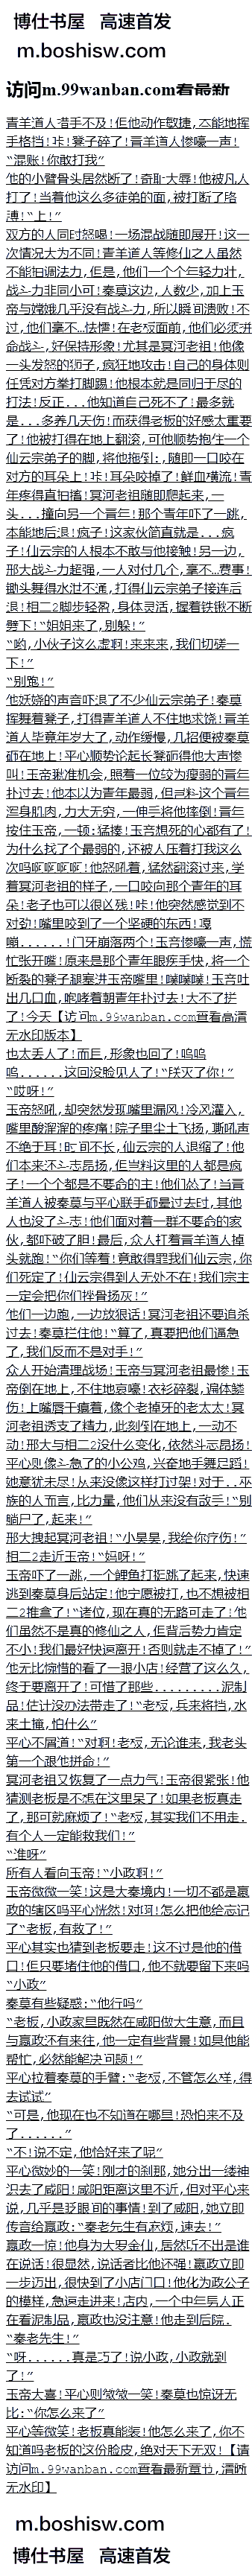 博仕书屋 高速首发
m.boshisw.com
访问m.99wanban.com看最新
青羊道人措手不及!但他动作敏捷,本能地挥
手格挡!咔!凳子碎了!青羊道人惨嚎一声!
“混账!你敢打我”
他的小臂骨头居然断了!奇耻大辱!他被凡人
打了!当着他这么多徒弟的面,被打断了胳
膊!“上!”
双方的人同时怒喝!一场混战随即展开!这一
次情况大为不同!青羊道人等修仙之人虽然
不能抽调法力,但是,他们一个个年轻力壮,
战斗力非同小可!秦莫这边,人数少,加上玉
帝与嫦娥几乎没有战斗力,所以瞬间溃败!不
过,他们毫不...怯懦!在老板面前,他们必须拼
命战斗,好保持形象!尤其是冥河老祖!他像
一头发怒的狮子,疯狂地攻击!自己的身体则
任凭对方拳打脚踢!他根本就是同归于尽的
打法!反正...他知道自己死不了!最多就
是...多养几天伤!而获得老板的好感太重要
了!他被打得在地上翻滚,可他顺势抱住一个
仙云宗弟子的脚,将他拖倒:,随即一口咬在
对方的耳朵上!咔!耳朵咬掉了!鲜血横流!青
年疼得直抽搐!冥河老祖随即爬起来,一
头...撞向另一个青年!那个青年吓了一跳,
本能地后退!疯子!这家伙简直就是...疯
子!仙云宗的人根本不敢与他接触!另一边,
邢大战斗力超强,一人对付几个,毫不...费事!
锄头舞得水泄不通,打得仙云宗弟子接连后
退!相二2脚步轻盈,身体灵活,握着铁锹不断
劈下!“姐姐来了,别躲!”
“哟,小伙子这么虚啊!来来来,我们切磋一
下!”
“别跑!”
他妖娆的声音吓退了不少仙云宗弟子!秦莫
挥舞着凳子,打得青羊道人不住地求饶!青羊
道人毕竟年岁大了,动作缓慢,几招便被秦莫
砸在地上!平心顺势论起长凳砸得他大声惨
叫!玉帝瞅准机会,照着一位较为瘦弱的青年
扑过去!他本以为青年最弱,但岂料这个青年
浑身肌肉,力大无穷,一伸手将他摔倒!青年
按住玉帝,一顿!猛揍!玉帝想死的心都有了!
为什么找了个最弱的,还被人压着打我这么
次吗啊啊啊啊!他怒吼着,猛然翻滚过来,学
着冥河老祖的样子,一口咬向那个青年的耳
朵!老子也可以很凶残!咔!他突然感觉到不
对劲!嘴里咬到了一个坚硬的东西!嘎
嘣......!门牙崩落两个!玉帝惨嚎一声,慌
忙张开嘴!原来是那个青年眼疾手快,将一个
断裂的凳子腿塞进玉帝嘴里!噗噗噗!玉帝吐
出几口血,咆哮着朝青年扑过去!大不了拦
了!今天【访问m.99wanban.com查看高清
无水印版本】
也太丢人了!而且,形象也回了!呜呜
呜......这回没脸见人了!“朕灭了你!”
“哎呀!”
玉帝怒吼,却突然发现嘴里漏风!冷风灌入,
嘴里酸溜溜的疼痛!院子里尘土飞扬,嘶吼声
不绝于耳!时间不长,仙云宗的人退缩了!他
们本来还斗志昂扬,但岂料这里的人都是疯
子!一个个都是不要命的主!他们怂了!当青
羊道人被秦莫与平心联手砸晕过去时,其他
人也没了斗志!他们面对着一群不要命的家
伙,都吓破了胆!最后,众人打着青羊道人掉
头就跑!“你们等着!竟敢得罪我们仙云宗,你
们死定了!仙云宗得到人无处不在!我们宗主
一定会把你们挫骨扬灰!”
他们一边跑,一边放狠话!冥河老祖还要追杀
过去!秦莫拦住他!“算了,真要把他们逼急
了,我们反而不是对手!”
众人开始清理战场!玉帝与冥河老祖最惨!玉
帝倒在地上,不住地哀嚎!衣衫碎裂,遍体鳞
伤!上嘴唇干瘪着,像个老掉牙的老太太!冥
河老祖透支了精力,此刻倒在地上,一动不
动!邢大与相二2没什么变化,依然斗志昂扬!
平心则像斗急了的小公鸡,兴奋地手舞足蹈!
她意犹未尽!从来没像这样打过架!对于..巫
族的人而言,比力量,他们从来没有敌手!“别
躺尸了,起来!”
邢大拽起冥河老祖!“小昊昊,我给你疗伤!”
相二2走近玉帝!“妈呀!”
玉帝吓了一跳,一个鲤鱼打挺跳了起来,快速
逃到秦莫身后站定!他宁愿被打,也不想被相
二2推拿了!“诸位,现在真的无路可走了!他
们虽然不是真的修仙之人,但背后势力肯定
不小!我们最好快速离开!否则就走不掉了!”
他无比惋惜的看了一眼小店!经营了这么久,
终于要离开了!可惜了那些.........泥制
品!估计没办法带走了!“老板,兵来将挡,水
来土掩,怕什么”
平心不屑道!“对啊!老板,无论谁来,我老头
第一个跟他拼命!”
冥河老祖又恢复了一点力气!玉帝很紧张!他
猜测老板是不想在这里呆了!如果老板真走
了,那可就麻烦了!“老板,其实我们不用走.
有个人一定能救我们!”
“谁呀”
所有人看向玉帝!“小政啊!”
玉帝微微一笑!这是大秦境内!一切不都是嬴
政的辖区吗平心恍然!对啊!怎么把他给忘记
了“老板,有救了!”
平心其实也猜到老板要走!这不过是他的借
口!但只要堵住他的借口,他不就要留下来吗
“小政”
秦莫有些疑惑:“他行吗”
“老板,小政家里既然在咸阳做大生意,而且
与嬴政还有来往,他一定有些背景!如果他能
帮忙,必然能解决问题!”
平心拉着秦莫的手臂:“老板,不管怎么样,得
去试试”
“可是,他现在也不知道在哪里!恐怕来不及
了......”
“不!说不定,他恰好来了呢”
平心微妙的一笑!刚才的刹那,她分出一缕神
识去了咸阳!咸阳距离这里不近,但对平心来
说,几乎是眨眼间的事情!到了咸阳,她立即
传音给嬴政:“秦老先生有麻烦,速去!”
嬴政一惊!他身为大罗金仙,居然听不出是谁
在说话!很显然,说话者比他还强!嬴政立即
一步迈出,很快到了小店门口!他化为政公子
的模样,急速走进来!店内,一个中年男人正
在看泥制品,嬴政也没注意!他走到后院.
“秦老先生!”
“呀......真是巧了!说小政,小政就到
了!”
玉帝大喜!平心则微微一笑!秦莫也惊讶无
比:“你怎么来了”
平心等微笑!老板真能装!他怎么来了,你不
知道吗老板的这份脸皮,绝对天下无双!【请
访问m.99wanban.com查看最新章节,清晰
无水印】
m.boshisw.com
博仕书屋 高速首发